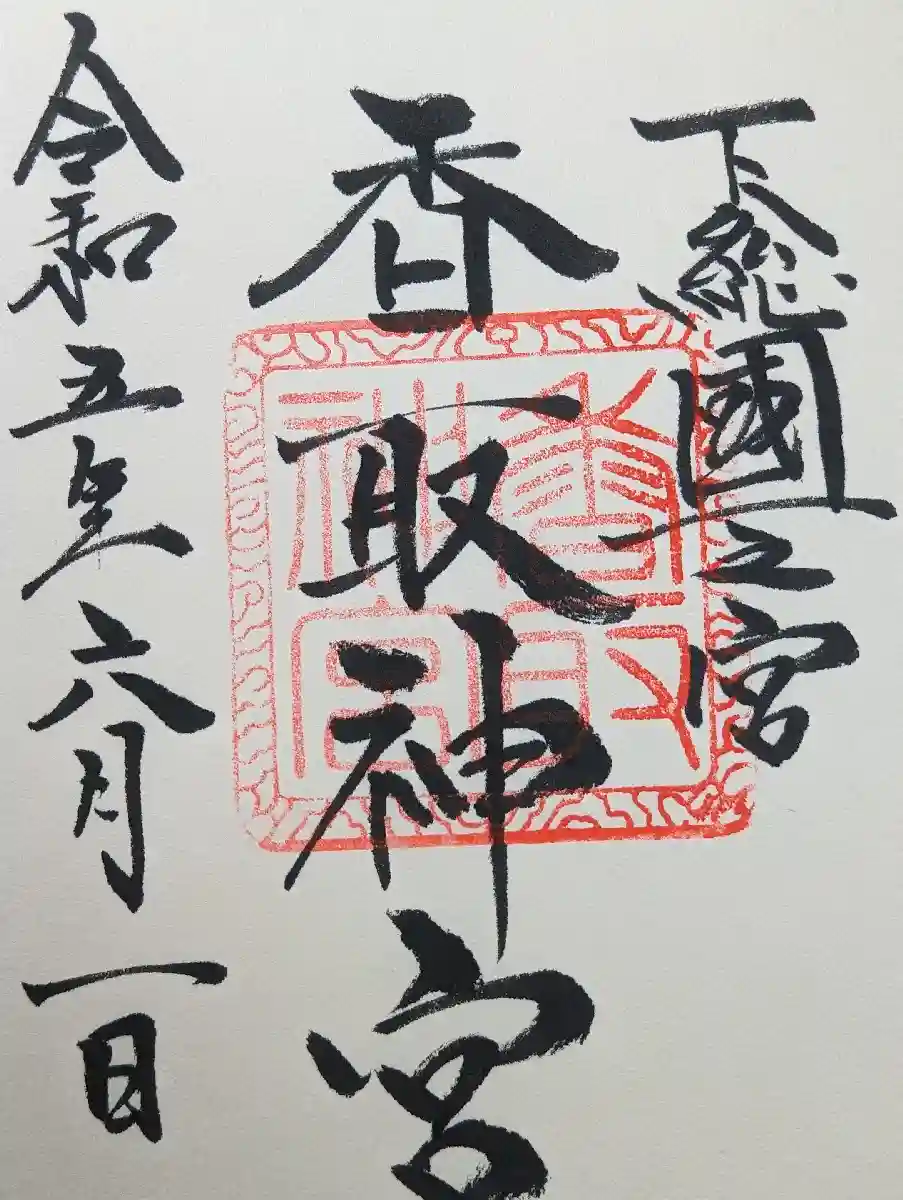 下総國一之宮
香取神宮
令和五年六月一日
香取
神宮